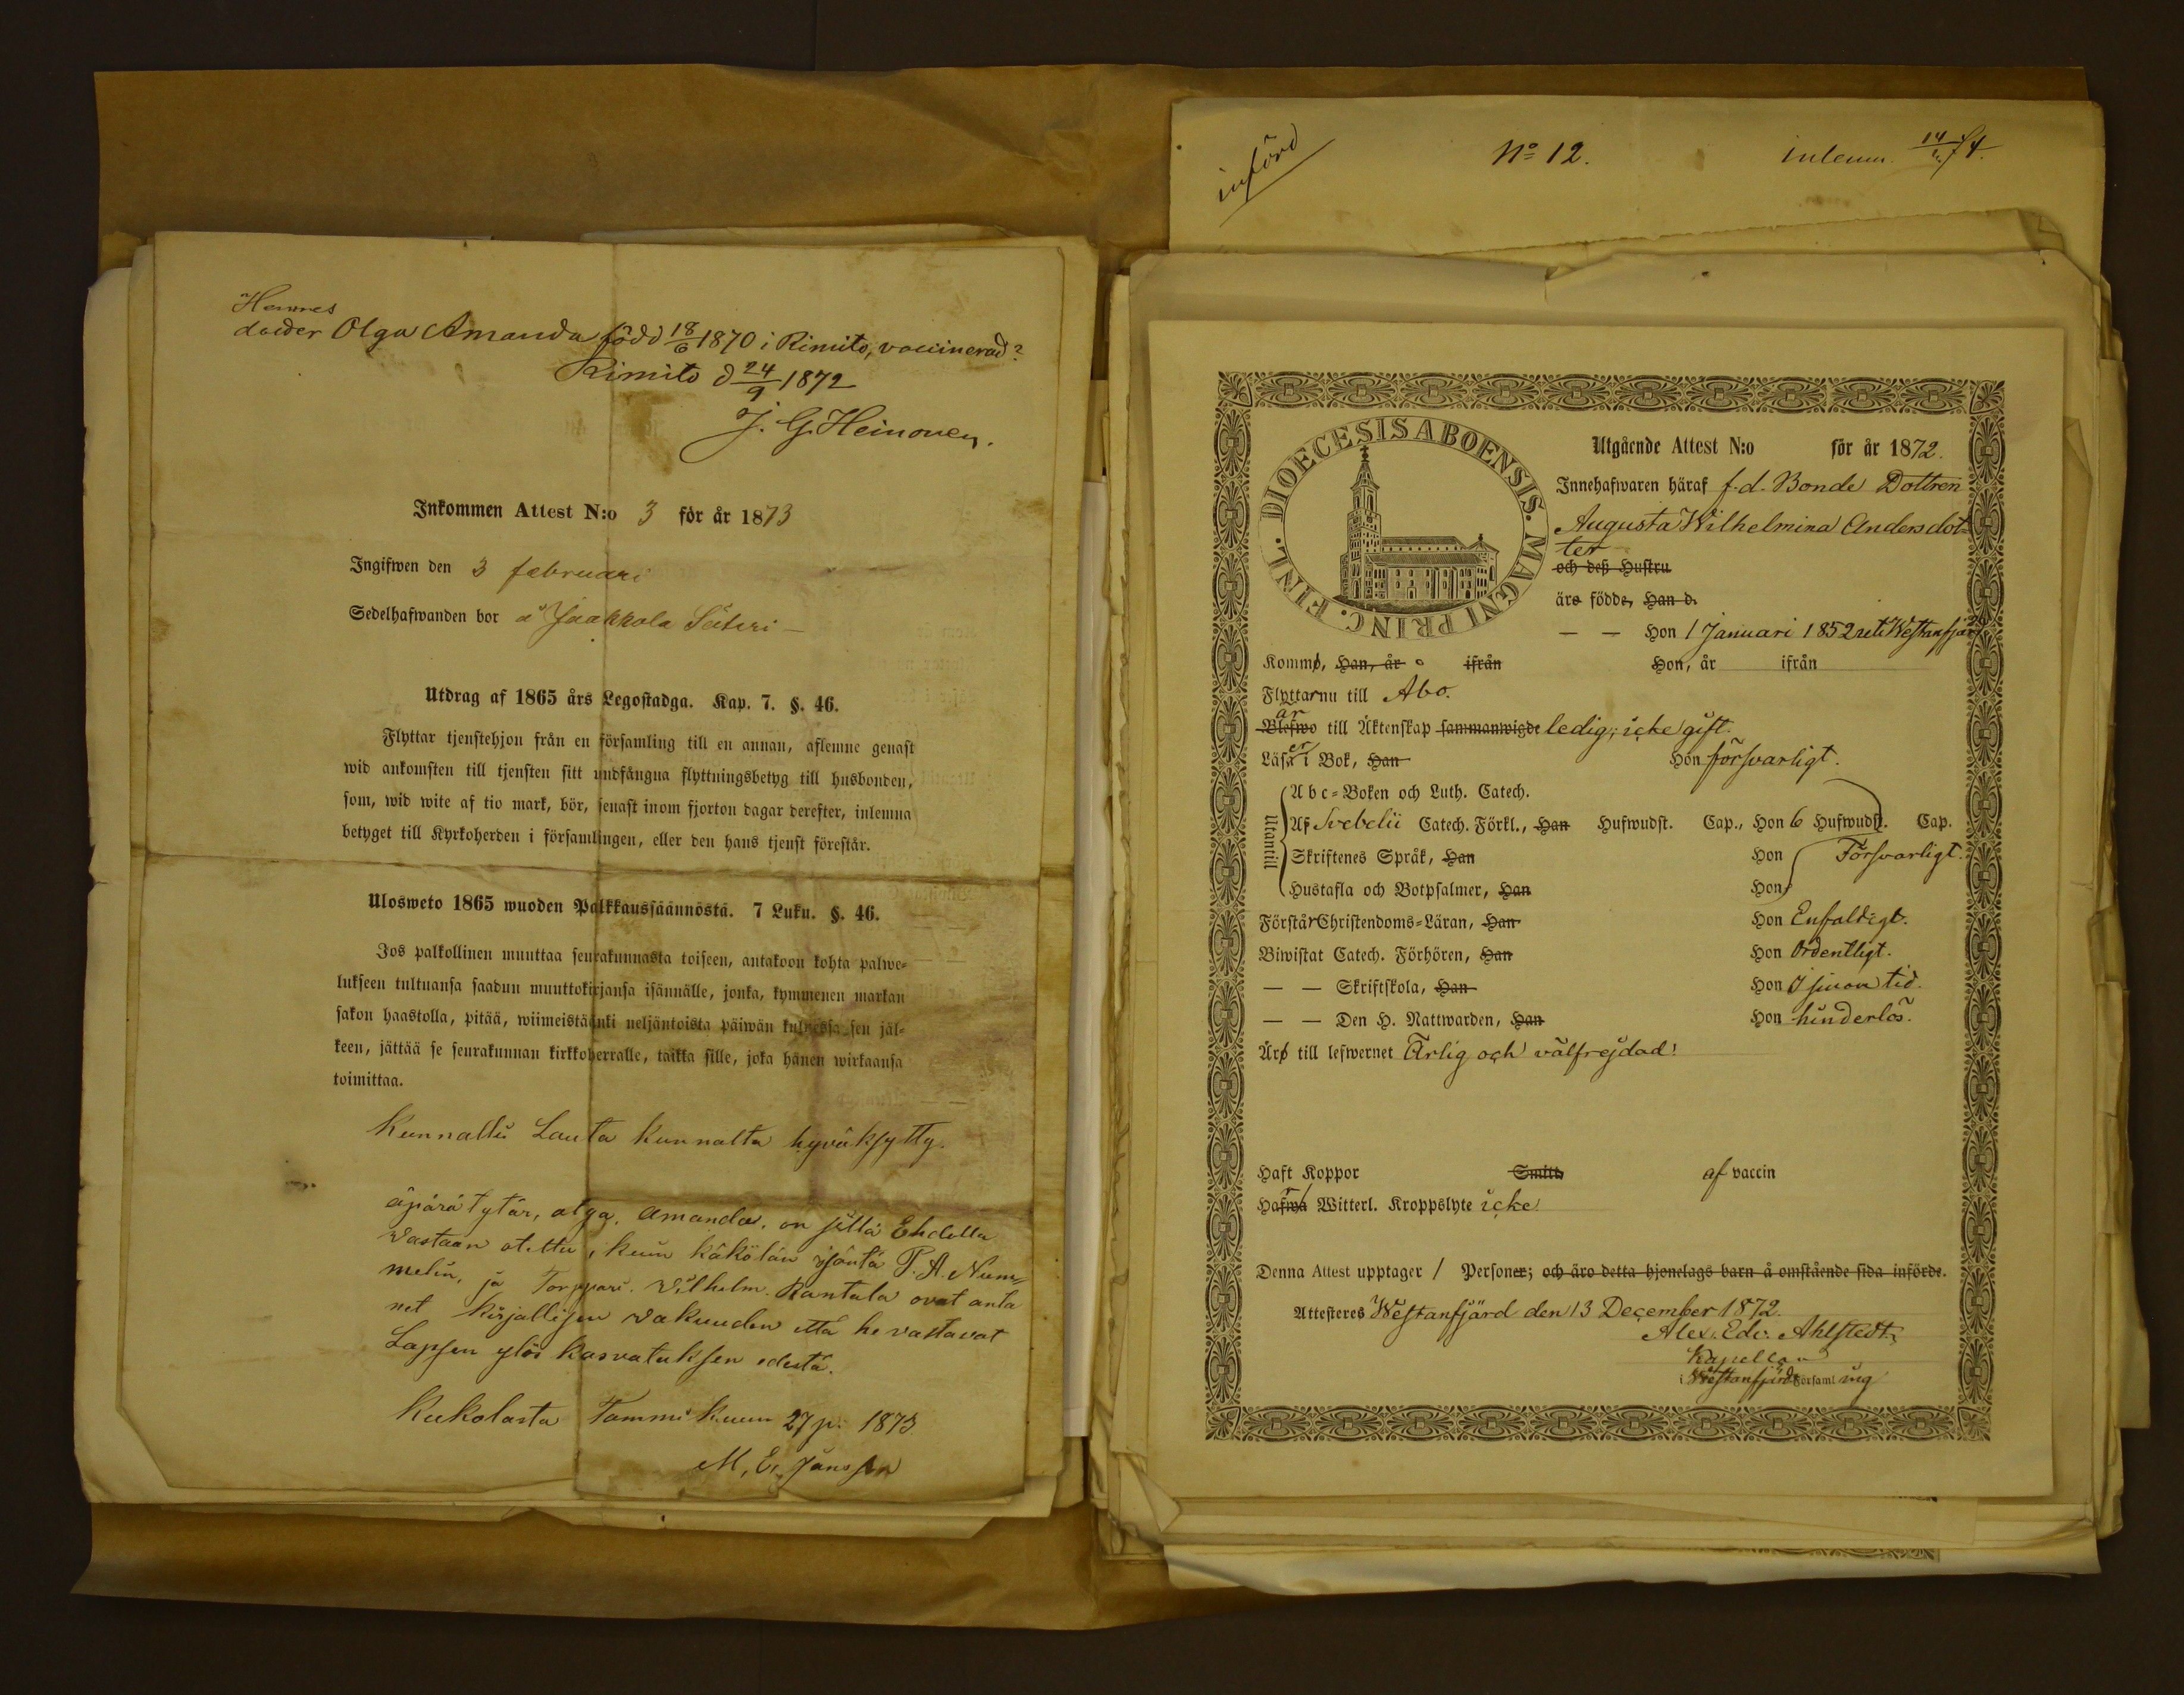 Hennes
dotter Olga Amanda född 18/6 1870 i Rimito, vaccinerad?
Rimito d 24/9 1872
J. G. Heinonen.
Inkommen Attest N:o 3 för år 1873
Ingifwen den 3 februari
Sedelhafwanden bor å Jaakkola Säteri
Utdrag af 1865 års Legostadga. Kap. 7. §. 46.
Flyttar tjenstehjon från en församling till en annan, aflemne genast
wid ankomsten till tjensten sitt undfångna flyttningsbetyg till husbonden,
som, wid wite af tio mark, bör, senast inom fjorton dagar derefter, inlemna
betyget till Kyrkoherden i församlingen, eller den hans tjenst förestår.
Ulosweto 1865 wuoden Palkkaussäännöstä. 7 Luku. §. 46.
Jos palkollinen muuttaa seurakunnasta toiseen, antakoon kohta palwe-
lukseen tultuansa saadun muuttokirjansa isännälle, jonka, kymmenen markan
sakon haastolla, pitää, wiimeistäänki neljäntoista päiwän kuluessa sen jäl-
keen, jättää se seurakunnan kirkkoherralle, taikka sille, joka hänen wirkaansa
toimittaa.
Kunnallis Lauta kunnalta hyväksytty.
äpärä tytär, olga, amanda, on sillä Ehdolla
Vastaan otettu, kuin käkölän isäntä P. A. Num-
melin, ja Torppari. Vilhelm. Rantala ovat anta
net kirjallisen Vakuuden että he vastavat
Lapsen ylös kasvatuksen edestä.
Kukolasta Tammi kuun 27 p: 1873
M, E, Jansson
införd
No 12.
inlemn. 14/2 74.
DIOECESIS ABOENSIS. MAGNI PRINC. FINL.
Utgående Attest N:o för år 1872.
Innehafwaren häraf f.d. Bonde Dottren
Augusta Wilhelmina Andersdot-
ter
och deß Hustru
äro födde, Han d.
— — Hon 1 Januari 1852 uti Westanfjärd
Komma, Han, år ifrån Hon, år ifrån
Flyttar nu till Åbo.
är
Blefwo till Äktenskap sammanwigde ledig; icke gift.
Läser i Bok, Han Hon försvarligt.
Utantill
Abc-Boken och Luth. Catech.
Af Svebelii Catech. Förkl., Han Hufwudst. Cap., Hon 6 Hufwudst. Cap.
Skriftenes Språk, Han Hon Försvarligt.
Hustafla och Botpsalmer, Han Hon
Förstår Christendoms-Läran, Han Hon Enfaldigt.
Biwistat Catech. Förhören, Han Hon Ordentligt.
— — Skriftskola, Han Hon I sinom tid.
— — Den H. Nattwarden, Han Hon hinderlös.
Äro till lefwernet Ärlig och välfrejdad!
Haft Koppor Smitt. af vaccin
Hafwa Witterl. Kroppslyte icke
Denna Attest upptager 1 Personer; och äro detta hjonelags barn å omstående sida införde.
Attesteres Westanfjärd den 13 December 1872.
Alex. Edv. Ahlstedt,
Kapellan
i Westanfjärds Församl ing